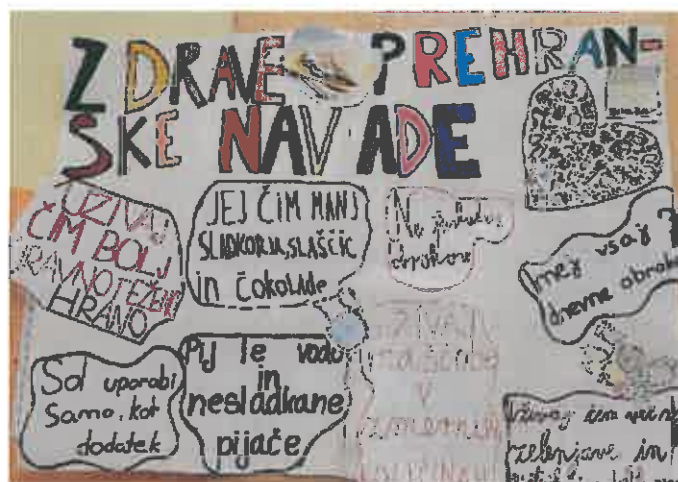 ZDRAVE PREHRAN-
SKE NAVADE
UŽIVAJ
ČIM BOLJ
URAVNOTEŽENO
HRANO
JEJ ČIM MANJ
SLADKORJA, SLAŠČIC
in čokolade
Ne
obrokov
imej vsaj
dnevne obroke
Sol uporabi
samo, kot
dodatek
Pij le vodo
in
nesladkane
pijače
UŽIVAJ
maščobe
v
Uživaj čim več
zelenjave in